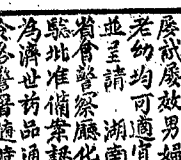 屡試屡效男婦
老幼均可適宜
並呈請 湖南
省會警察廳化
驗批准備案認
為濟世葯品通